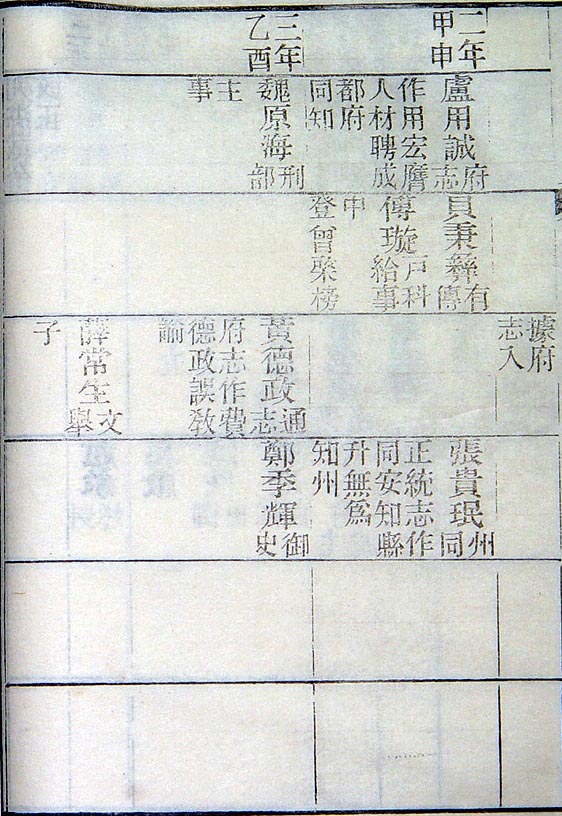 二年
甲申
三年
乙酉
盧用誠府
志
作用宏膺
人材聘成
都府
同知
魏原海刑
部
主
事
員秉彝有
傳
傅璇戶科
給事
中
登曾棨榜
據府
志入
黃德政通
志
府志作費
德政誤敎
諭
薛常生文
舉
子
張貴珉州
同
正統志作
同安知縣
升無爲
知州
鄭季輝御
史